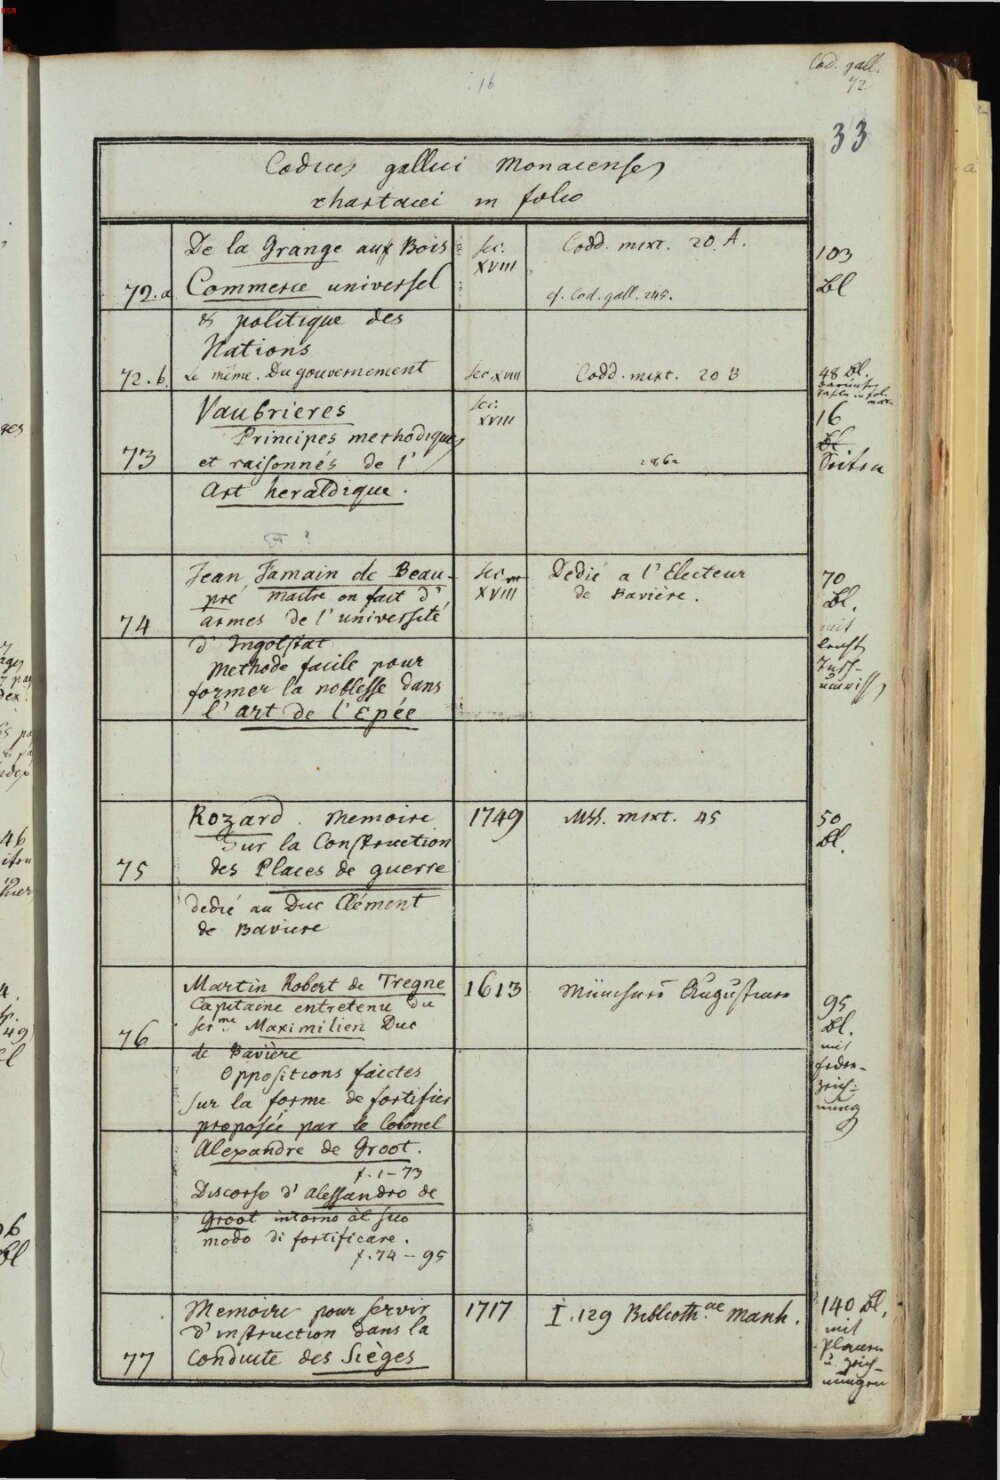 Cod. gall.
72
16
33
Codices gallici Monacenses
chartacei in folio
De la Grange aux Bois
sec.
XVIII
Codd. mixt. 20 A.
103
Bl
72.a
Commerce universel
cf. Cod. gall. 245.
& politique des
Nations
72.b.
Le même. Du gouvernement
sec. XVIII
Codd. mixt. 20 B
48 Bl.
Vaubrieres
sec.
XVIII
16
Bl
Seiten
Principes methodiques
73
et raisonnés de l'
Art heraldique.
Jean Jamain de Beau-
pré maitre en fait d'
74
armes de l'université
d'Ingolstat
Methode facile pour
former la noblesse dans
l'art de l'Epée
sec.
XVIII
Dedié a l'Electeur
de Bavière.
70
Bl.
mit
Rozard. Memoire
sur la Construction
75
des Places de guerre
dedié au Duc Clément
de Baviere
1749
Mss. mixt. 45
50
Bl.
Martin Robert de Tregne
Capitaine entretenu du
ser.me Maximilien Duc
76
de Bavière
Oppositions faictes
sur la forme de fortifier
proposée par le Colonel
Alexandre de Groot.
f. 1-73
Discorso d'Alessandro de
Groot intorno al suo
modo di fortificare.
f. 74-95
1613
95
Bl.
mit
Feder-
zeich-
nung
Memoire pour servir
d'instruction dans la
77
conduite des Sièges
1717
I. 129 Biblioth.ae Manh.
140 Bl.
mit
Plänen
u. zeich-
nungen